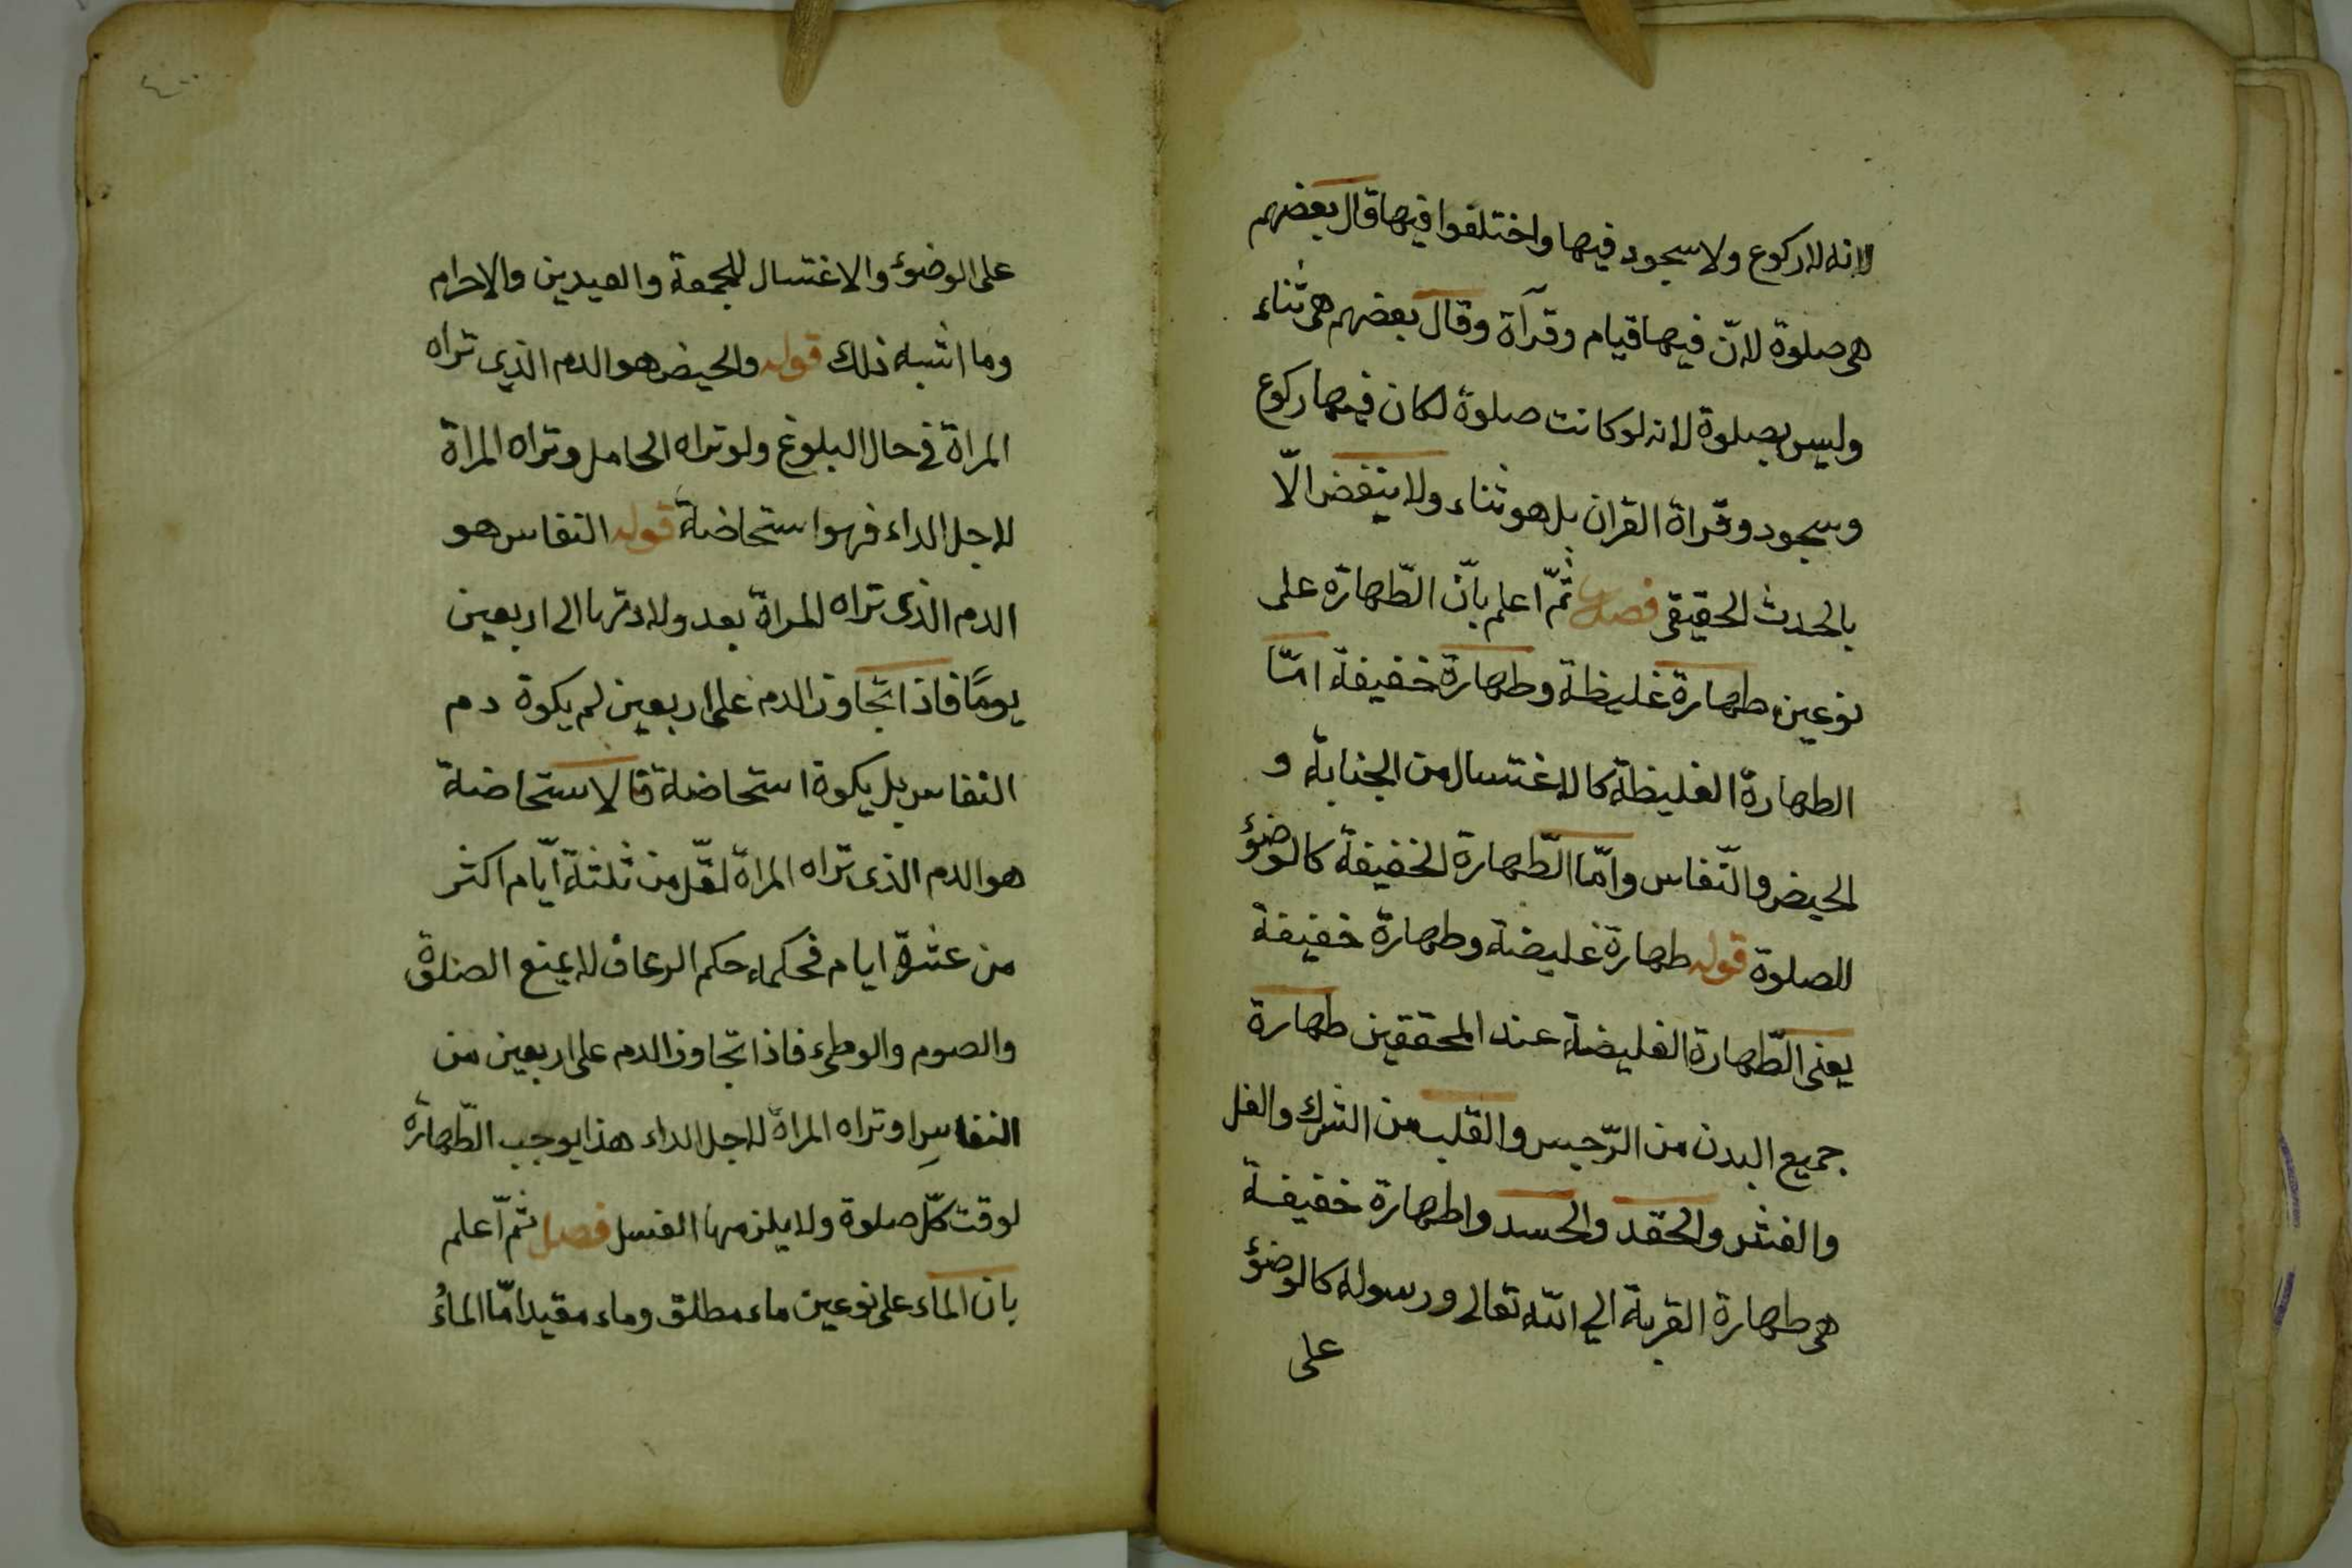 لانه لا ركوع ولا سجود فيها واختلفوا فيها قال بعضهم
هى صلوة لانّ فيها قيام وقرآة وقال بعضهم هى ثناء
وليس بصلوة لانه لو كانت صلوة لكان فيها ركوع
وسجود وقراة القران بل هو ثناء ولا ينقض الّا
بالحدث الحقيقى فصل ثمّ اعلم بانّ الطّهارة على
نوعين طهارة غليظة وطهارة خفيفة امّا
الطهارة الغليظة كالاغتسال من الجنابة و
الحيض والنّفاس وامّا الطّهارة الخفيفة كالوضؤ
للصلوة قوله طهارة غليضة وطهارة خفيفة
يعنى الطّهارة الغليضة عند المحققين طهارة
جميع البدن من الرّجس والقلب من الشرك والغل
والغش والحقد والحسد واطهارة خفيفة
هى طهارة القربة الي الله تعالى ورسوله كالوضؤ
على
٤٠
على الوضوء والاغتسال للجمعة والعيدين والاحرام
وما اشبه ذلك قوله والحيض هو الدم الذي تراه
المراة في حال البلوغ ولو تراه الحامل وتراه المراة
لاجل الداء فهو استحاضة قوله النفاس هو
الدم الذى تراه المراة بعد ولادتها الى اربعين
يومًا فاذا تجاوز الدم على اربعين لم يكوة دم
النفاس بل يكوة استحاضة قا لاستحاضة
هو الدم الذى تراه المراة لقّل من ثلثة ايّام اكثر
من عشرة ايام فحكماء حكم الرعاف لا يمنع الصلوة
والصوم والوطىء فاذا تجاوز الدم على اربعين من
النفاسِ او تراه المراة لاجل الداء هذا يوجب الطّهارة
لوقت كلّ صلوة ولا يلزمها الغسل فصل ثمّ اعلم
بان الماء على نوعين ماء مطلق وماء مقيد امّا الماءُ